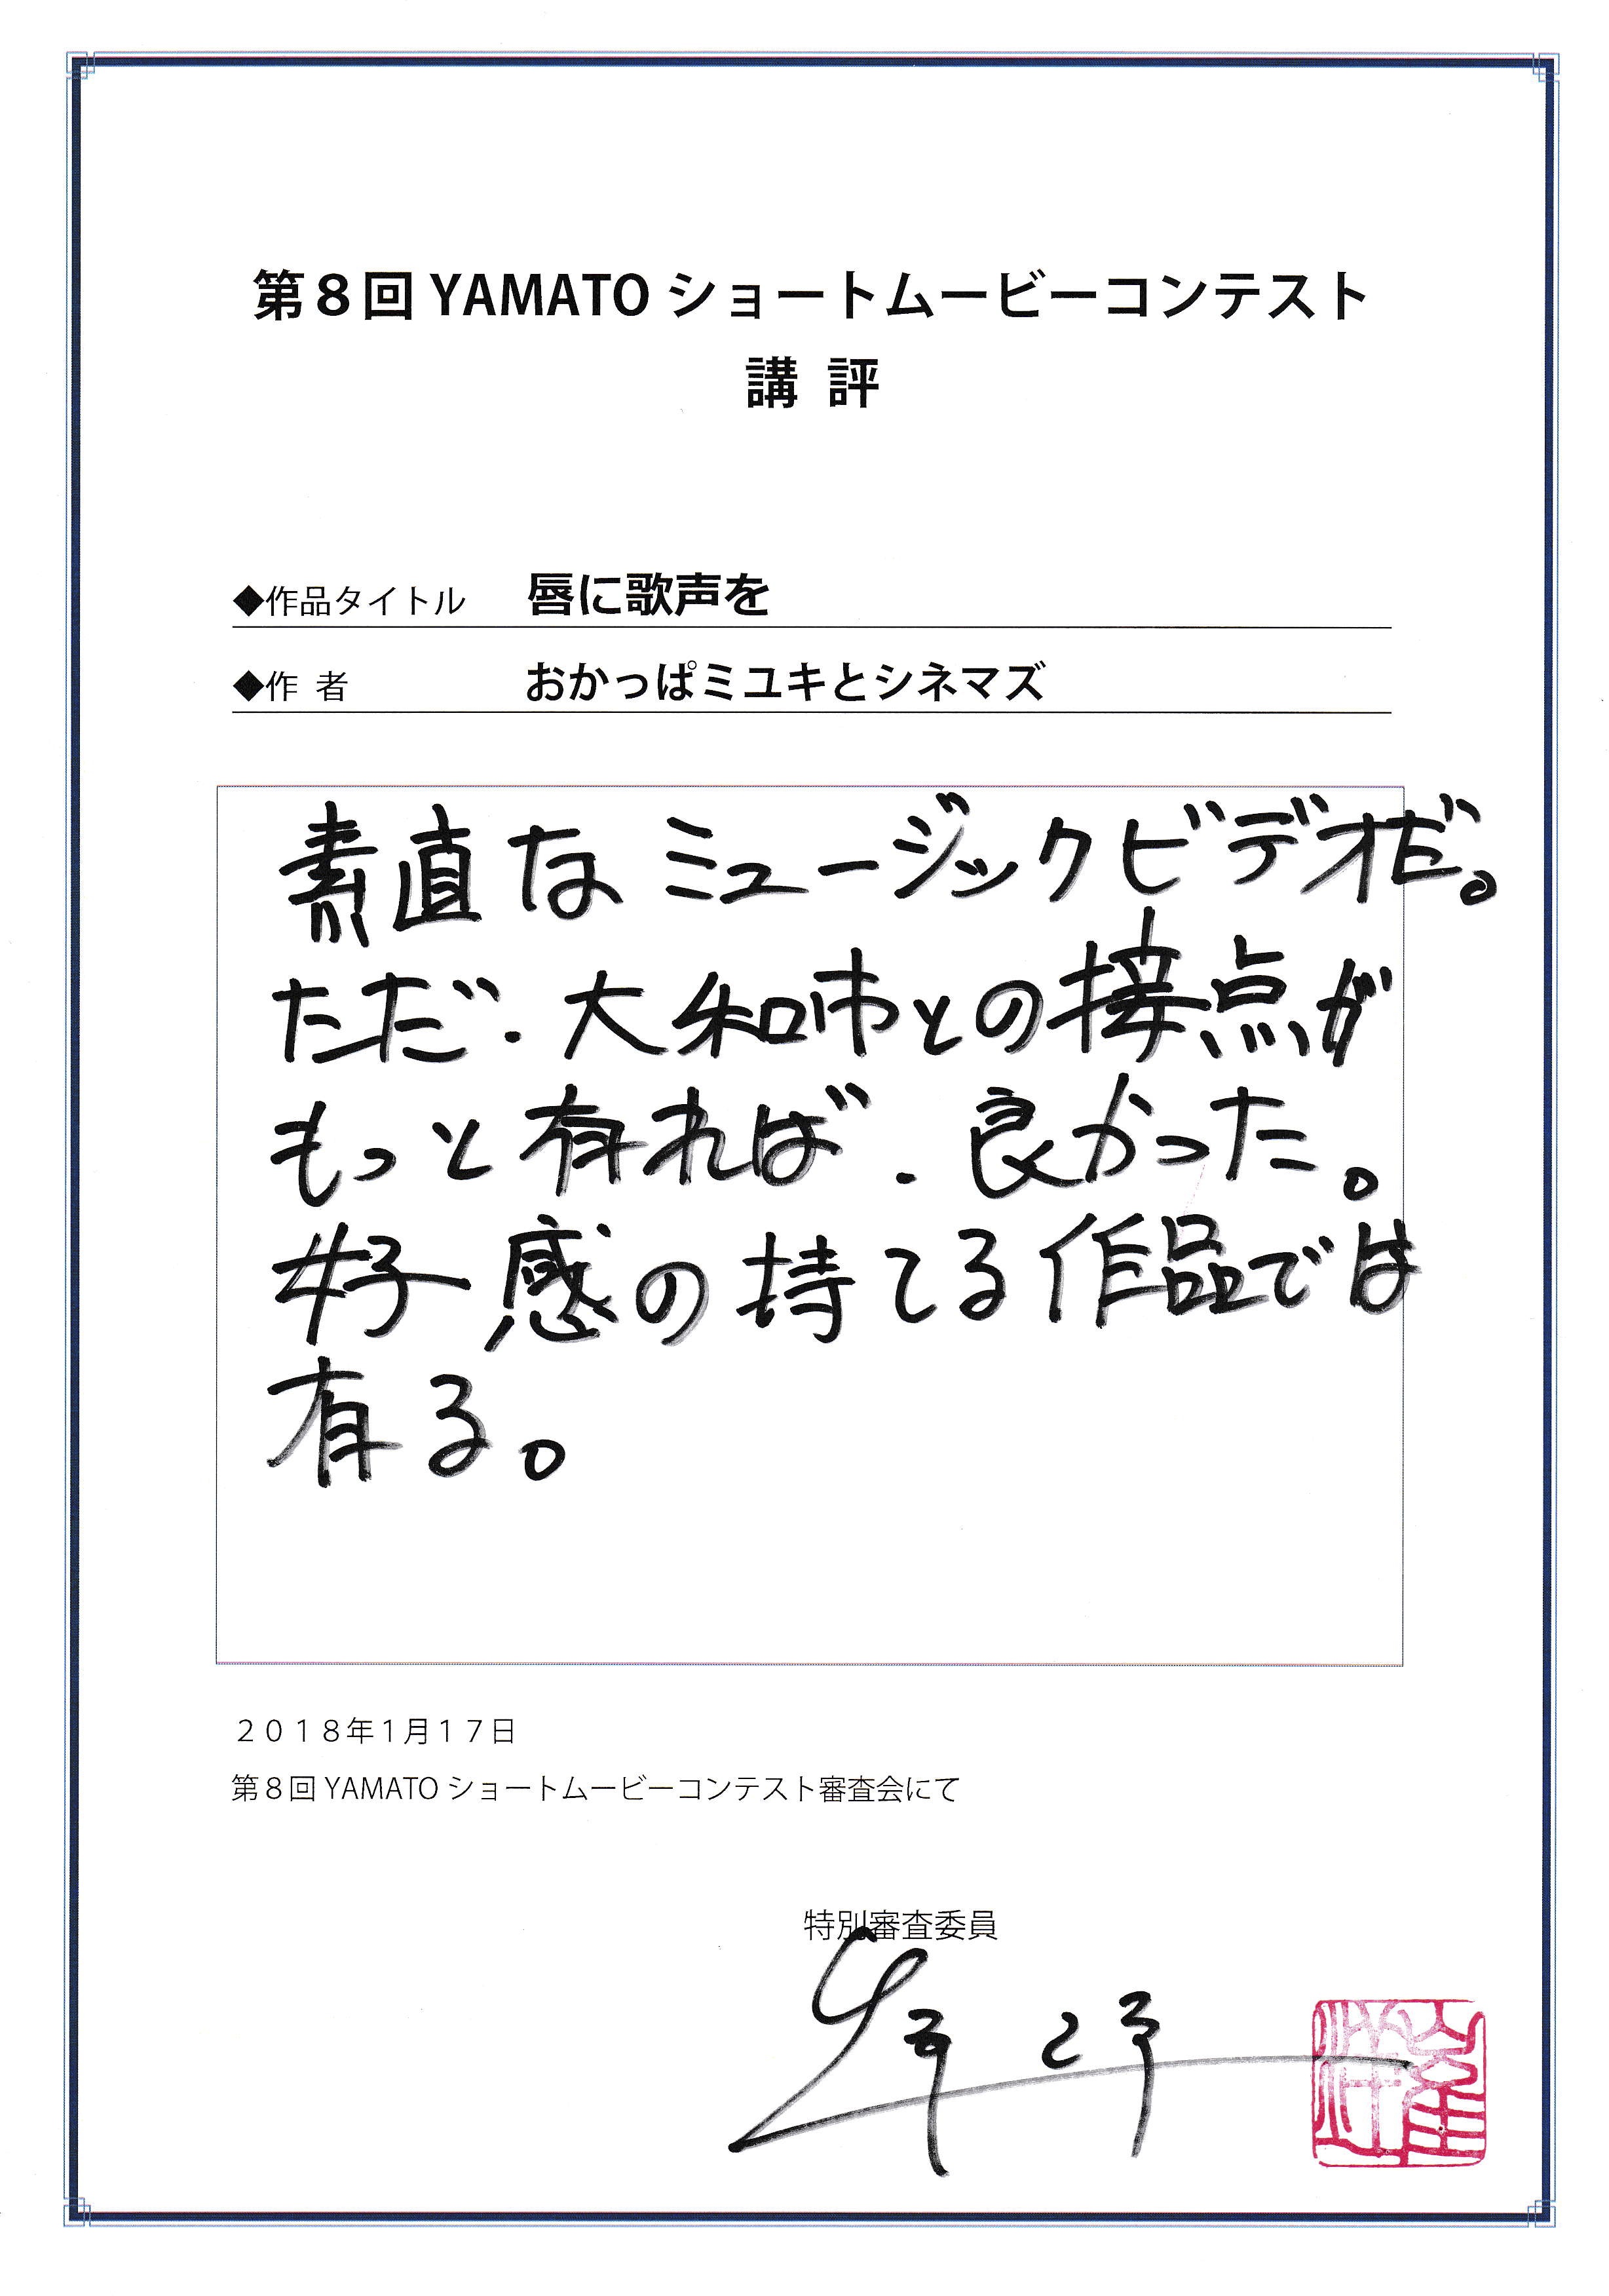 第８回 YAMATO ショートムービーコンテスト
講 評
◆作品タイトル 唇に歌声を
◆作 者 おかっぱミユキとシネマズ
素直なミュージックビデオだ。
ただ、大和市との接点が
もっと有れば、良かった。
好感の持てる作品では
有る。
２０１８年１月１７日
第８回 YAMATO ショートムービーコンテスト審査会にて
特別審査委員